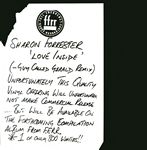 ffrr
SHARON FORRESTER
'LOVE INSIDE'
(-GUY CALLED GERALD REMIX)
UNFORTUNATELY THIS QUALITY
VINYL OFFERING WILL UNFORTUNATELY
NOT MAKE COMMERCIAL RELEASE
... BUT WILL BE AVAILABLE ON
THE FORTHCOMING COMPILATION
ALBUM FROM FFRR.
#1 OF ONLY 800 WHITES!!